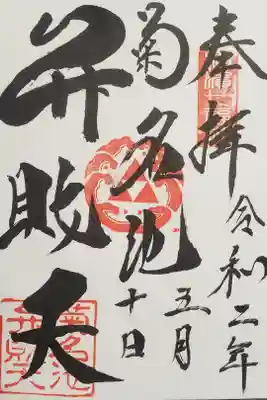 奉拝
令和二年
五月
十日
菊名池
弁財天
菊名池
弁財天